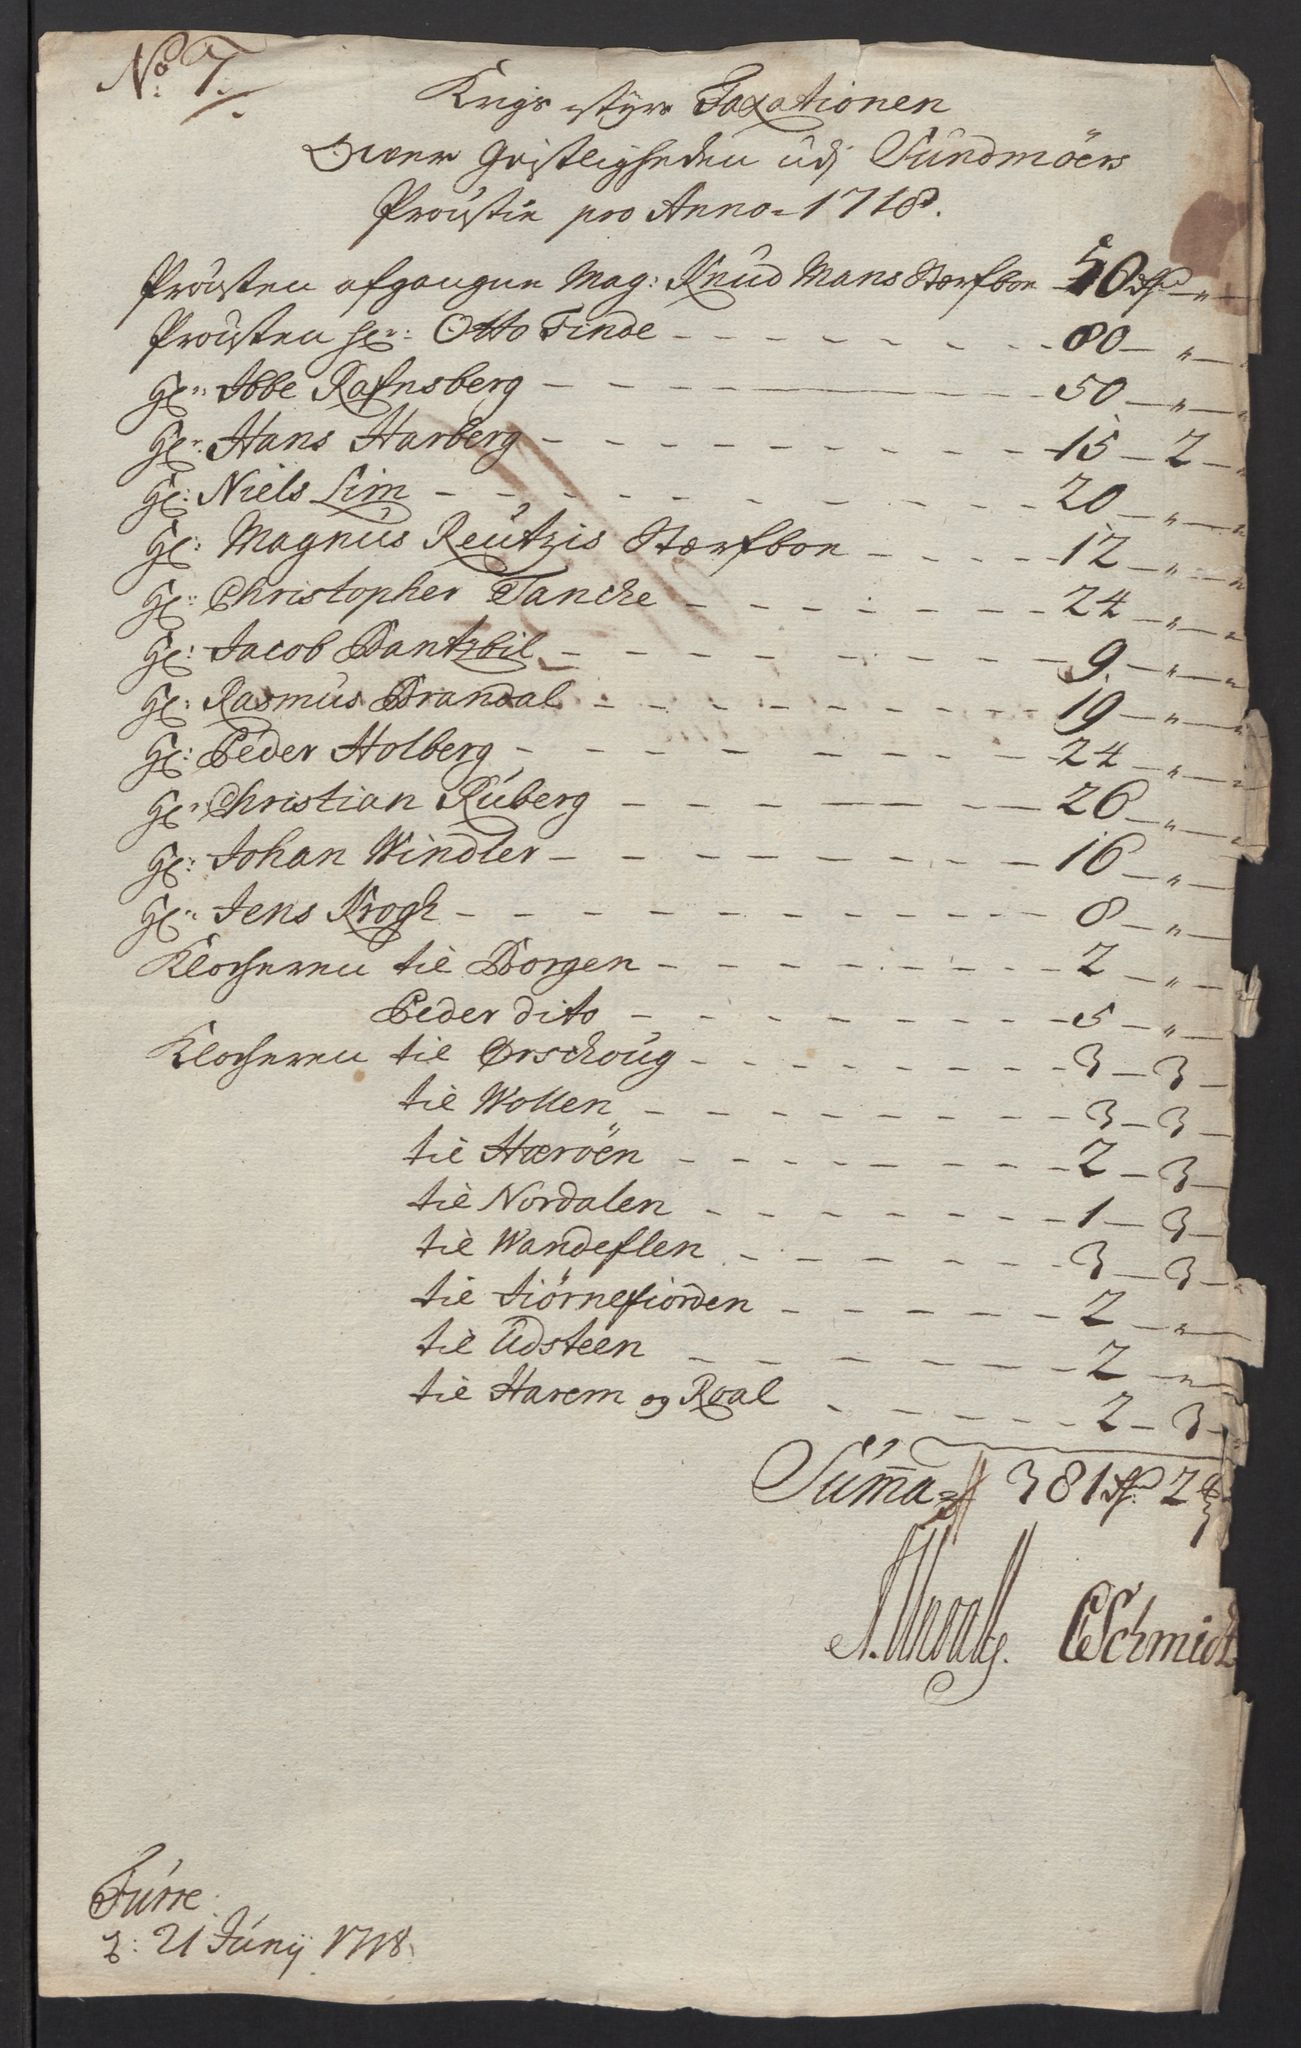 No: 7.
Krigs styrs Taxationen
Over Geistligheden udj Sundmöers
Proustie pro Anno 1718.
Prousten afgangne Mag: Knud Mans Stærfboe 50 Rdr „
Prousten Hr: Otto Finde - - - 80 — „ —
Hr: Ibbe Rafnsberg - - - 50 — „ —
Hr: Hans Harberg - - - 15 — 2 —
Hr: Niels Lim - - - 20 — „ —
Hr: Magnus Reutzis Stærfboe - - - 12 — „ —
Hr: Christopher Tancke - - - 24 — „ —
Hr: Jacob Dantzbil - - - 9 — „ —
Hr: Rasmus Brandal - - - 19 — „ —
Hr: Peder Holberg - - - 24 — „ —
Hr: Christian Ruberg - - - 26 — „ —
Hr: Johan Windler - - - 16 — „ —
Hr: Jens Krogh - - - 8 — „ —
Klocheren til Borgen - - - 2 — „ —
Peder dito - - - 5 — „ —
Klocheren til Ørschoug - - - 3 — 3 —
til Wollen - - - 3 — 3 —
til Hæröen - - - 2 — 3 —
til Nordalen - - - 1 — 3 —
til Wandeflen - - - 3 — 3 —
til Jiørnefiorden - - - 2 — „ —
til Udsteen - - - 2 — „ —
til Harem og Roal - - - 2 — 3 —
Sum̅a 381 Rdr 2
CSchmidt
Furre
d: 21 Junij 1718.